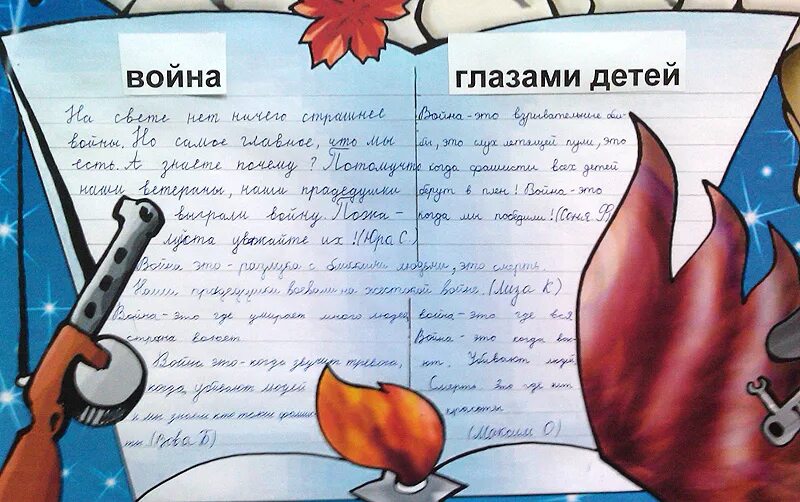 война
глазами детей
На свете нет ничего страшнее
войны. Но самое главное, что мы
есть. А знаете почему? Потомучто
наши ветераны, наши прадедушки
выграли войну. Пожа-
луста уважайте их! (Юра С)
Война-это взрывательные
это слух летящей пули, это
когда фашисты всех детей
брут в плен! Война-это
когда мы победили! (Соня Ф)
Война это-разлука с близкими людьми, это смерть.
Наши прадедушки воевали на жестокой войне. (Лиза К)
Война-это где умирает много людей
страна воюет.
Война это-когда звучит тревога,
когда убивают людей
и мы знаем кто такие фашис
ты (Вова Б)
война-это где вся
Война-это когда вою-
ют. Убивают людей
Смерть. Это где нит
красоты
(Максим О)